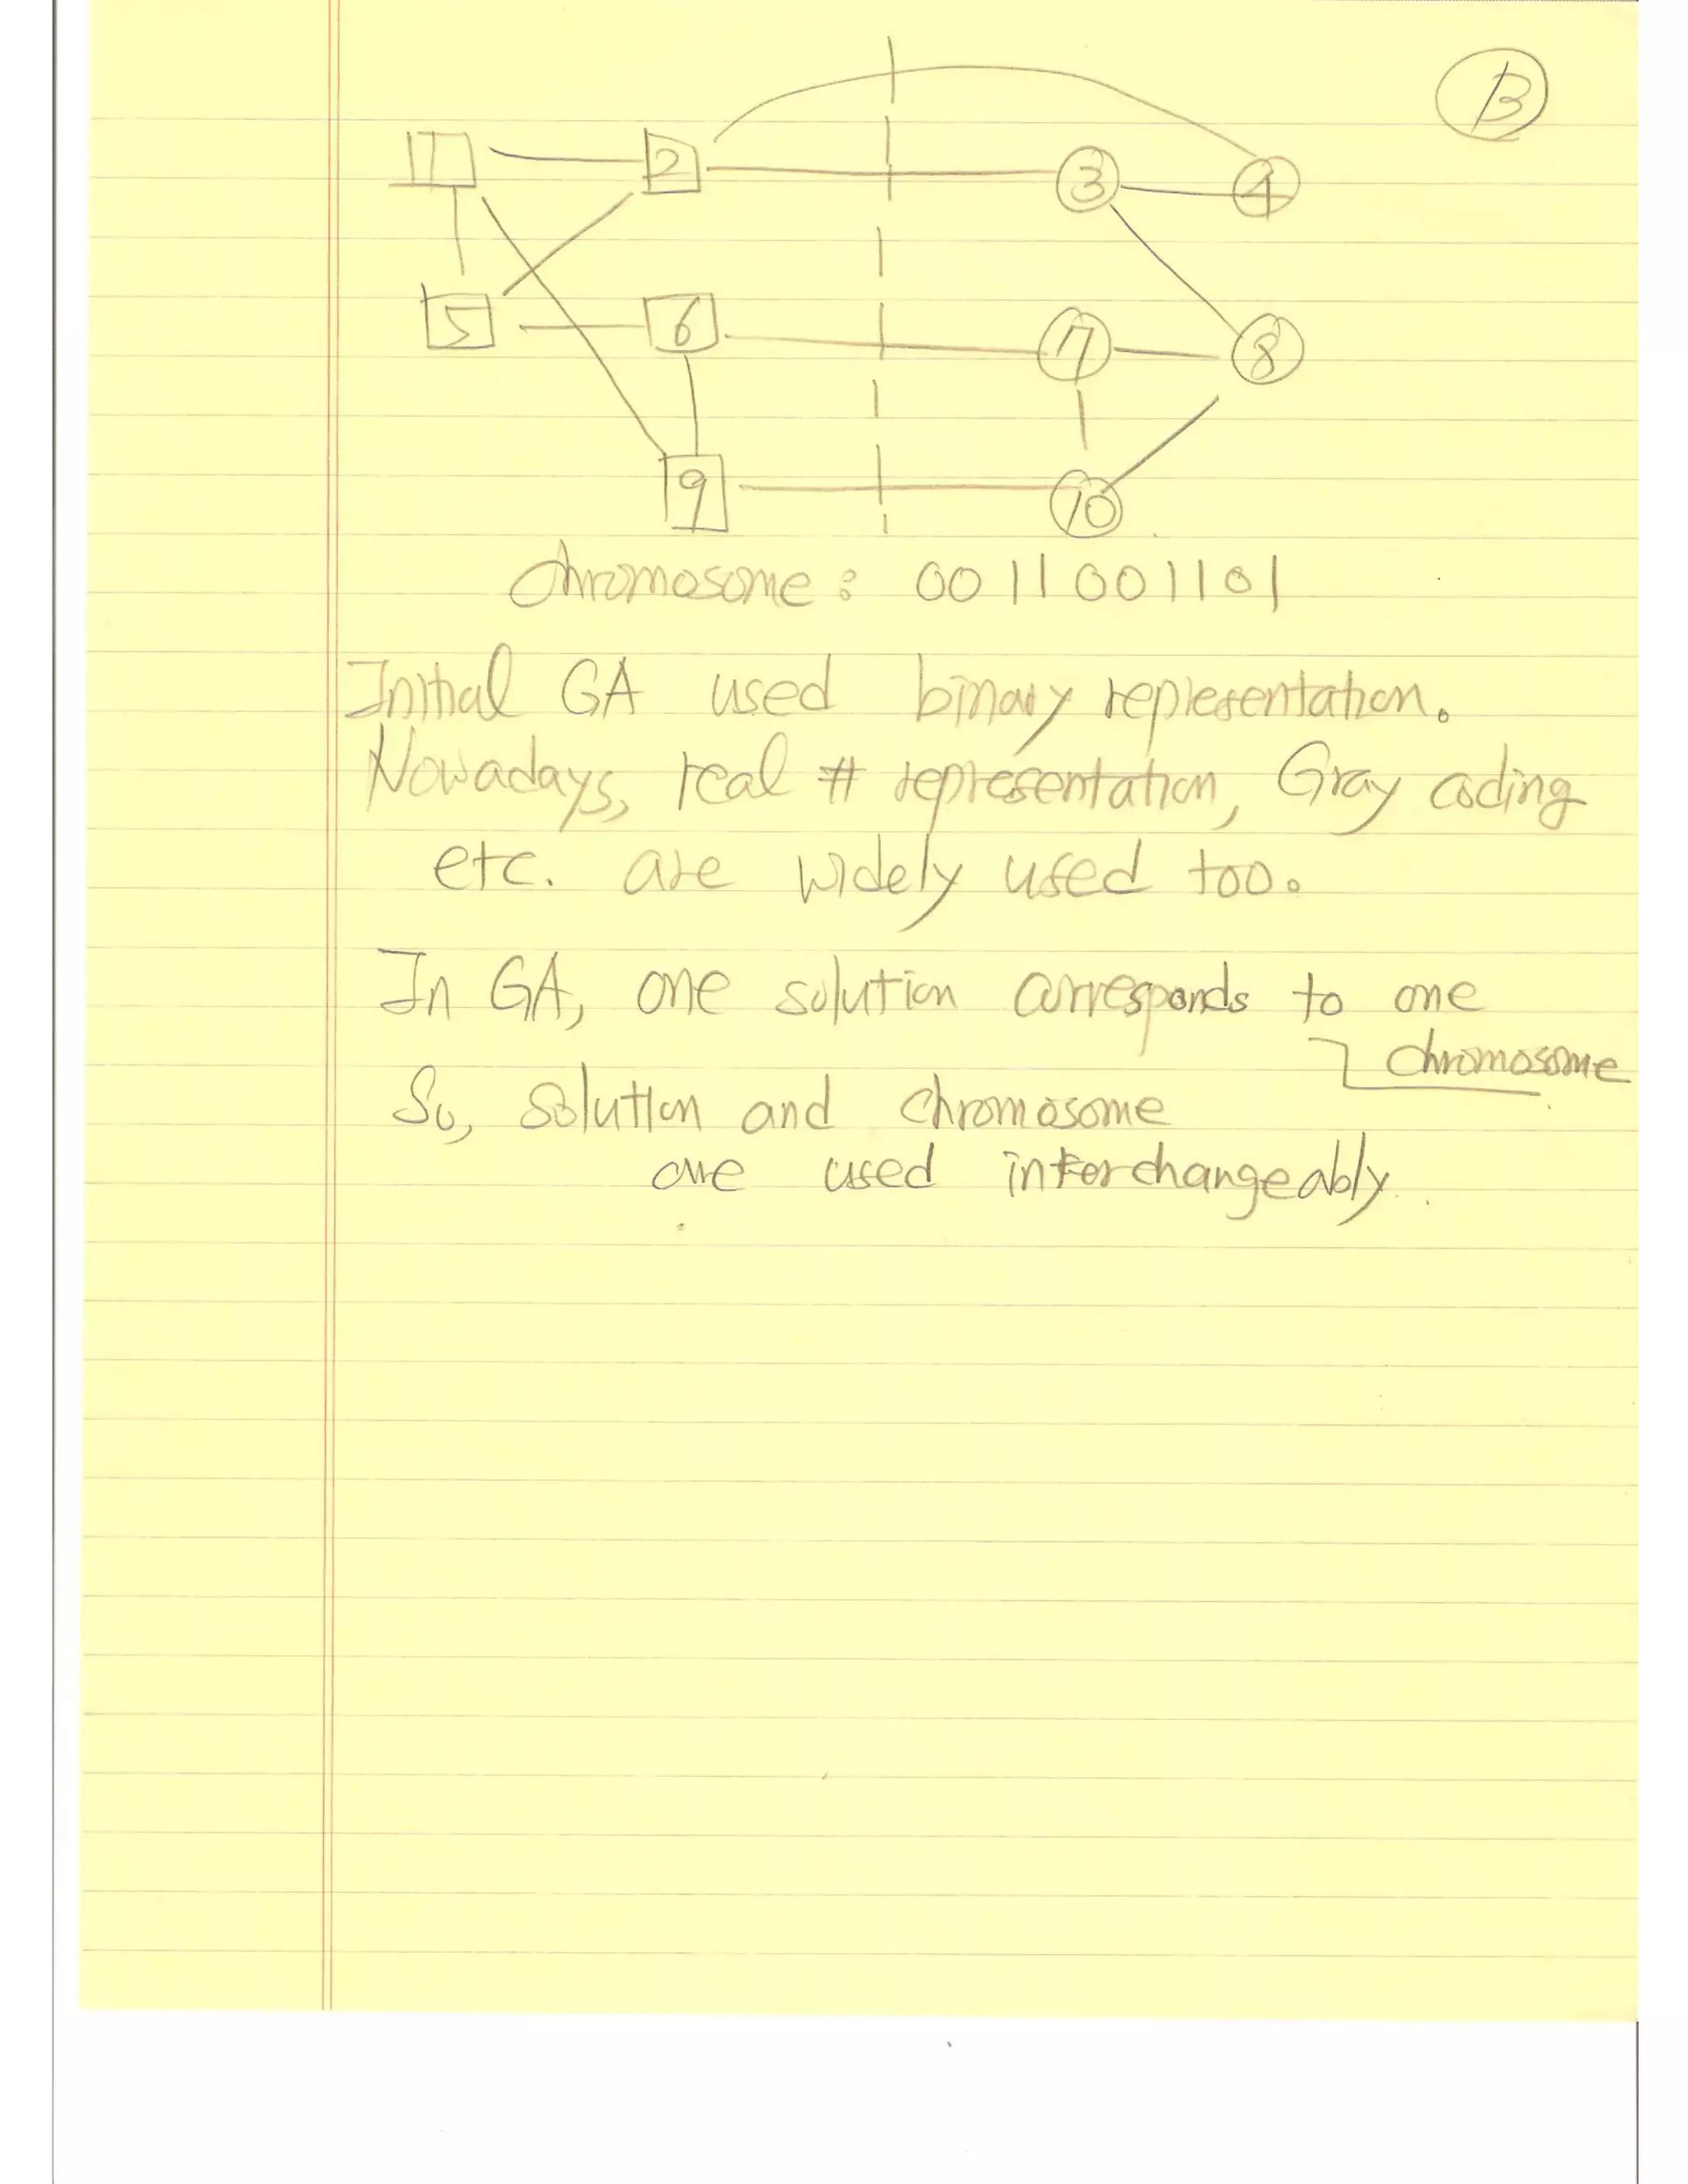 B
1 2 3 4
5 6 7 8
9 10
chromosome: 0011001101
Initial GA used binary representation.
Nowadays, real # representation, Gray coding
etc. are widely used too.
In GA, one solution corresponds to one
chromosome
So, solution and chromosome
are used interchangeably.